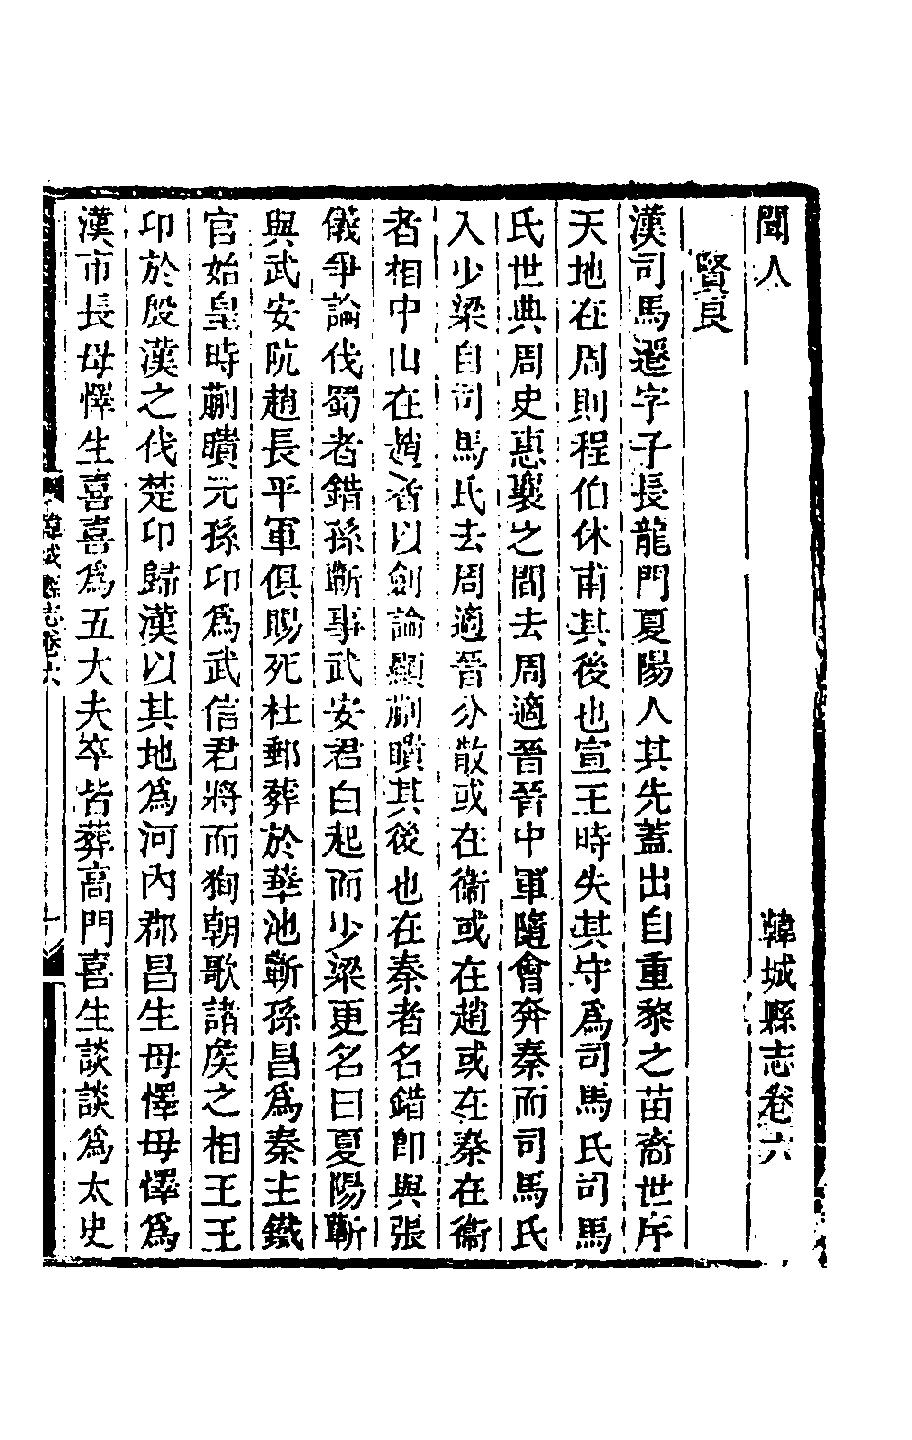 聞人　韓城縣志卷六
賢良
漢司馬遷字子長龍門夏陽人其先蓋出自重黎之苗裔世序
天地在周則程伯休甫其後也宣王時失其守為司馬氏司馬
氏世典周史惠襄之間去周適晉晉中軍隨會奔秦而司馬氏
入少梁自司馬氏去周適晉分散或在衞或在趙或在秦在衞
者相中山在趙者以劍論顯蒯聵其後也在秦者名錯卽與張
儀爭論伐蜀者錯孫蘄事武安君白起而少梁更名曰夏陽蘄
與武安阬趙長平軍俱賜死杜郵葬於華池蘄孫昌為秦主鐵
官始皇時蒯聵元孫卬為武信君將而狥朝歌諸矦之相王王
卬於殷漢之伐楚卬歸漢以其地為河內郡昌生母懌母懌為
漢市長母懌生喜喜為五大夫卒皆葬高門喜生談談為太史
韓城縣志卷六